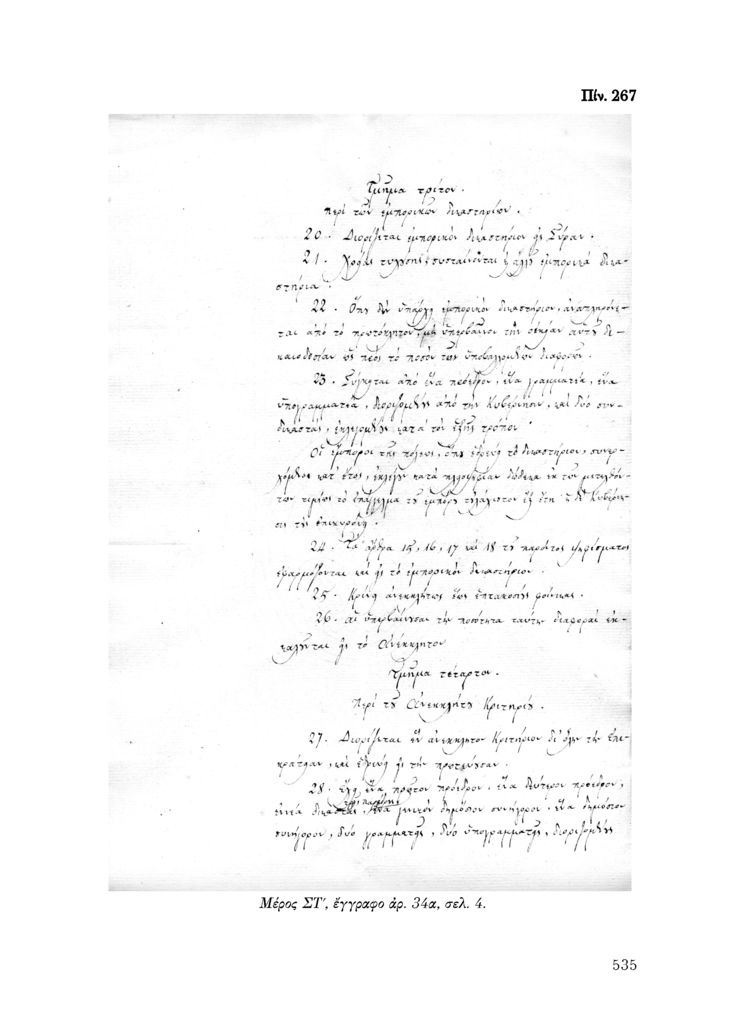 Πίν. 267
Τμῆμα τρίτον.
περὶ τῶν ἐμπορικῶν δικαστηρίων.
20. Διορίζεται ἐμπορικὸν δικαστήριον εἰς Σύραν.
21. Χρείας τυχούσης, συσταίνονται ἐμπορικὰ δικα-
στήρια.
22. Ὅπου δὲν ὑπάρχει ἐμπορικὸν δικαστήριον, ἀναπληρόνε-
ται ἀπὸ τὸ πρωτόκλητον, μὴ ὑπερβαῖνον τὴν αὐτοῦ δι-
καιοδοσίαν ὡς πρὸς τὸ ποσὸν τῶν ὑποβαλλομένων διαφορῶν.
23. Σύγκειται ἀπὸ ἕνα πρόεδρον, ἕνα γραμματέα, ἕνα
ὑπογραμματέα, διοριζομένους ἀπὸ τὴν Κυβέρνησιν, καὶ δύο συν-
δικαστὰς, ἐκλεγομένους κατὰ τὸν ἑξῆς τρόπον
Οἱ ἔμποροι τῆς πόλεως, ὅπου ἑδρεύει τὸ δικαστήριον, συνερ-
χόμενοι κατ' ἔτος, ἐκλέγουν κατὰ πληοψηφίαν δώδεκα ἐκ τῶν μετελθόν-
των τιμίως τὸ ἐπάγγελμα τοῦ ἐμπόρου τουλάχιστον ἓξ ἔτη· ἡ δὲ Κυβέρνη-
σις τοὺς ἐπικυρόνει.
24. Τὰ ἄρθρα 15, 16, 17 καὶ 18 τοῦ παρόντος ψηφίσματος
ἐφαρμόζονται καὶ εἰς τὸ ἐμπορικὸν δικαστήριον.
25. Κρίνει ἀνεκκλήτως ἕως ἑπτακοσίους φοίνικας.
26. αἱ ὑπερβαίνουσαι τὴν ποσότητα ταύτην διαφοραὶ ἐκ-
καλοῦνται εἰς τὸ Ἀνέκκλητον
Τμῆμα τέταρτον.
Περὶ τοῦ Ἀνεκκλήτου Κριτηρίου.
27. Διορίζεται ἓν ἀνέκκλητον Κριτήριον δι' ὅλην τὴν ἐπι-
κράτειαν, καὶ ἑδρεύει εἰς τὴν πρωτεύουσαν.
28. Ἔχει ἕνα πρῶτον πρόεδρον, ἕνα δεύτερον πρόεδρον,
ἐννέα δικαστὰς, ἕνα γενικὸν δημόσιον συνήγορον, ἕνα δημόσιον
συνήγορον, δύο γραμματεῖς, δύο ὑπογραμματεῖς, διοριζομένους
Μέρος ΣΤ', ἔγγραφο ἀρ. 34α, σελ. 4.
535